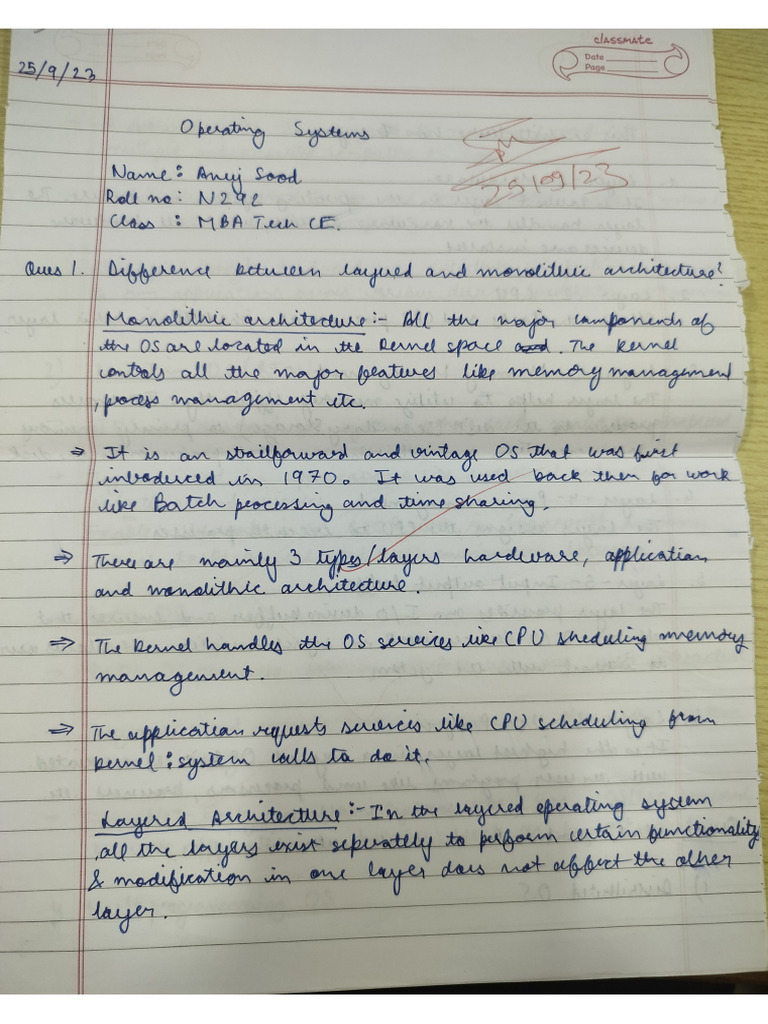 classmate
Date
Page
25/9/23
Operating Systems
Name: Anuj Sood
Roll no: N292
Class: MBA Tech CE.
25/09/23
Ques 1. Difference between layered and monolithic architecture?
Monolithic architecture:- All the major components of
the OS are located in the kernel space and. The kernel
controls all the major features like memory management
, process management etc.
⇒ It is an straiforward and vintage OS that was first
introduced in 1970. It was used back then for work
like Batch processing and time sharing.
⇒ There are mainly 3 types/layers hardware, application
and monolithic architecture.
⇒ The kernel handles the OS services like CPU sheduling memory
management.
⇒ The application requests services like CPU scheduling from
kernel: system calls to do it.
Layered Architecture:- In the layered operating system
, all the layers exist seperately to perform certain functionality
& modification in one layer does not affect the other
layer.